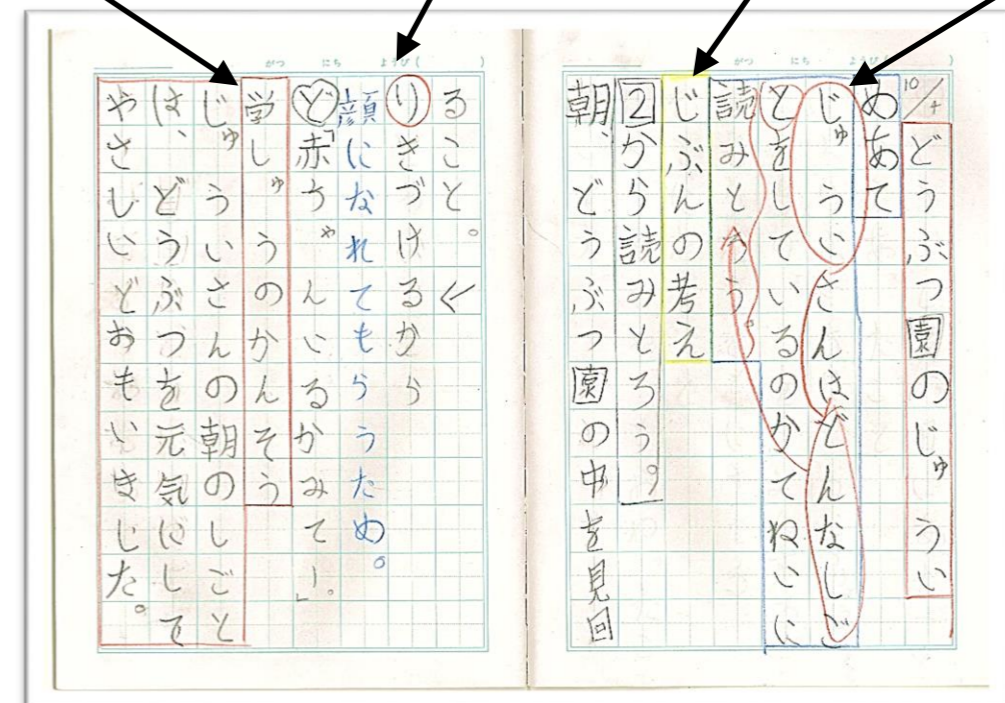 10/4 どうぶつ園のじゅうい
めあて
じゅういさんはどんなしご
とをしているのかていねいに
読みとろう。
じぶんの考え
2から読みとろう。
朝、どうぶつ園の中を見回
がつ にち ようび( )
ること。
りきづけるから
顔になれてもらうため。
ど「赤ちゃんいるかみてー」。
学しゅうのかんそう
じゅういさんの朝のしごと
は、どうぶつを元気にして
やさしいどおもいました。
がつ にち ようび( )